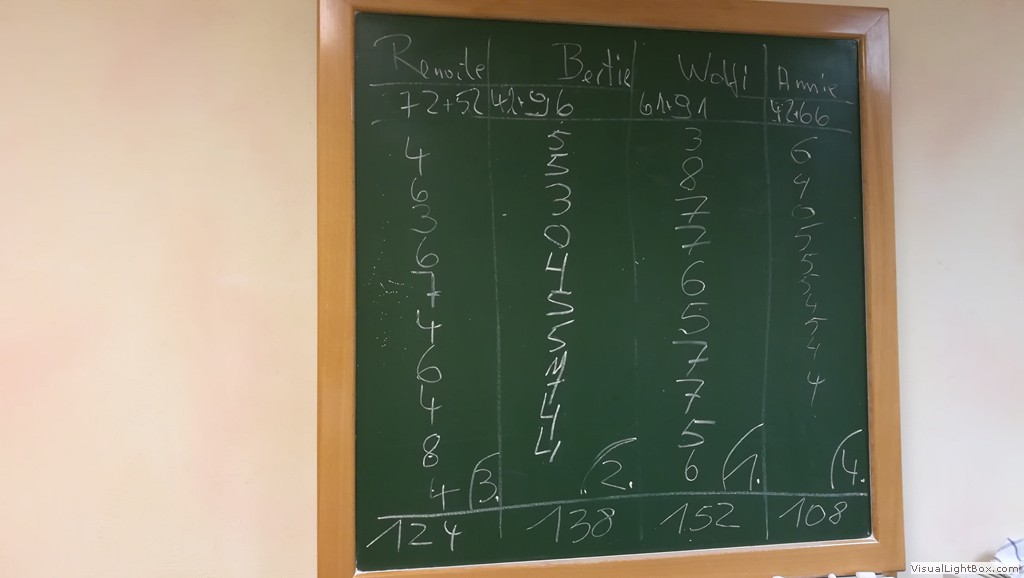 Renate Bertie Wolfi Annie
72+52 42+96 61+91 42+66
4 5 3 6
6 5 8 4
3 3 7 0
6 0 7 5
7 4 6 5
4 5 5
6 5 7 5
4 7 4
8 4 5 4
4 4 6
3. 2. 1. 4.
124 138 152 108
VisualLightBox.com